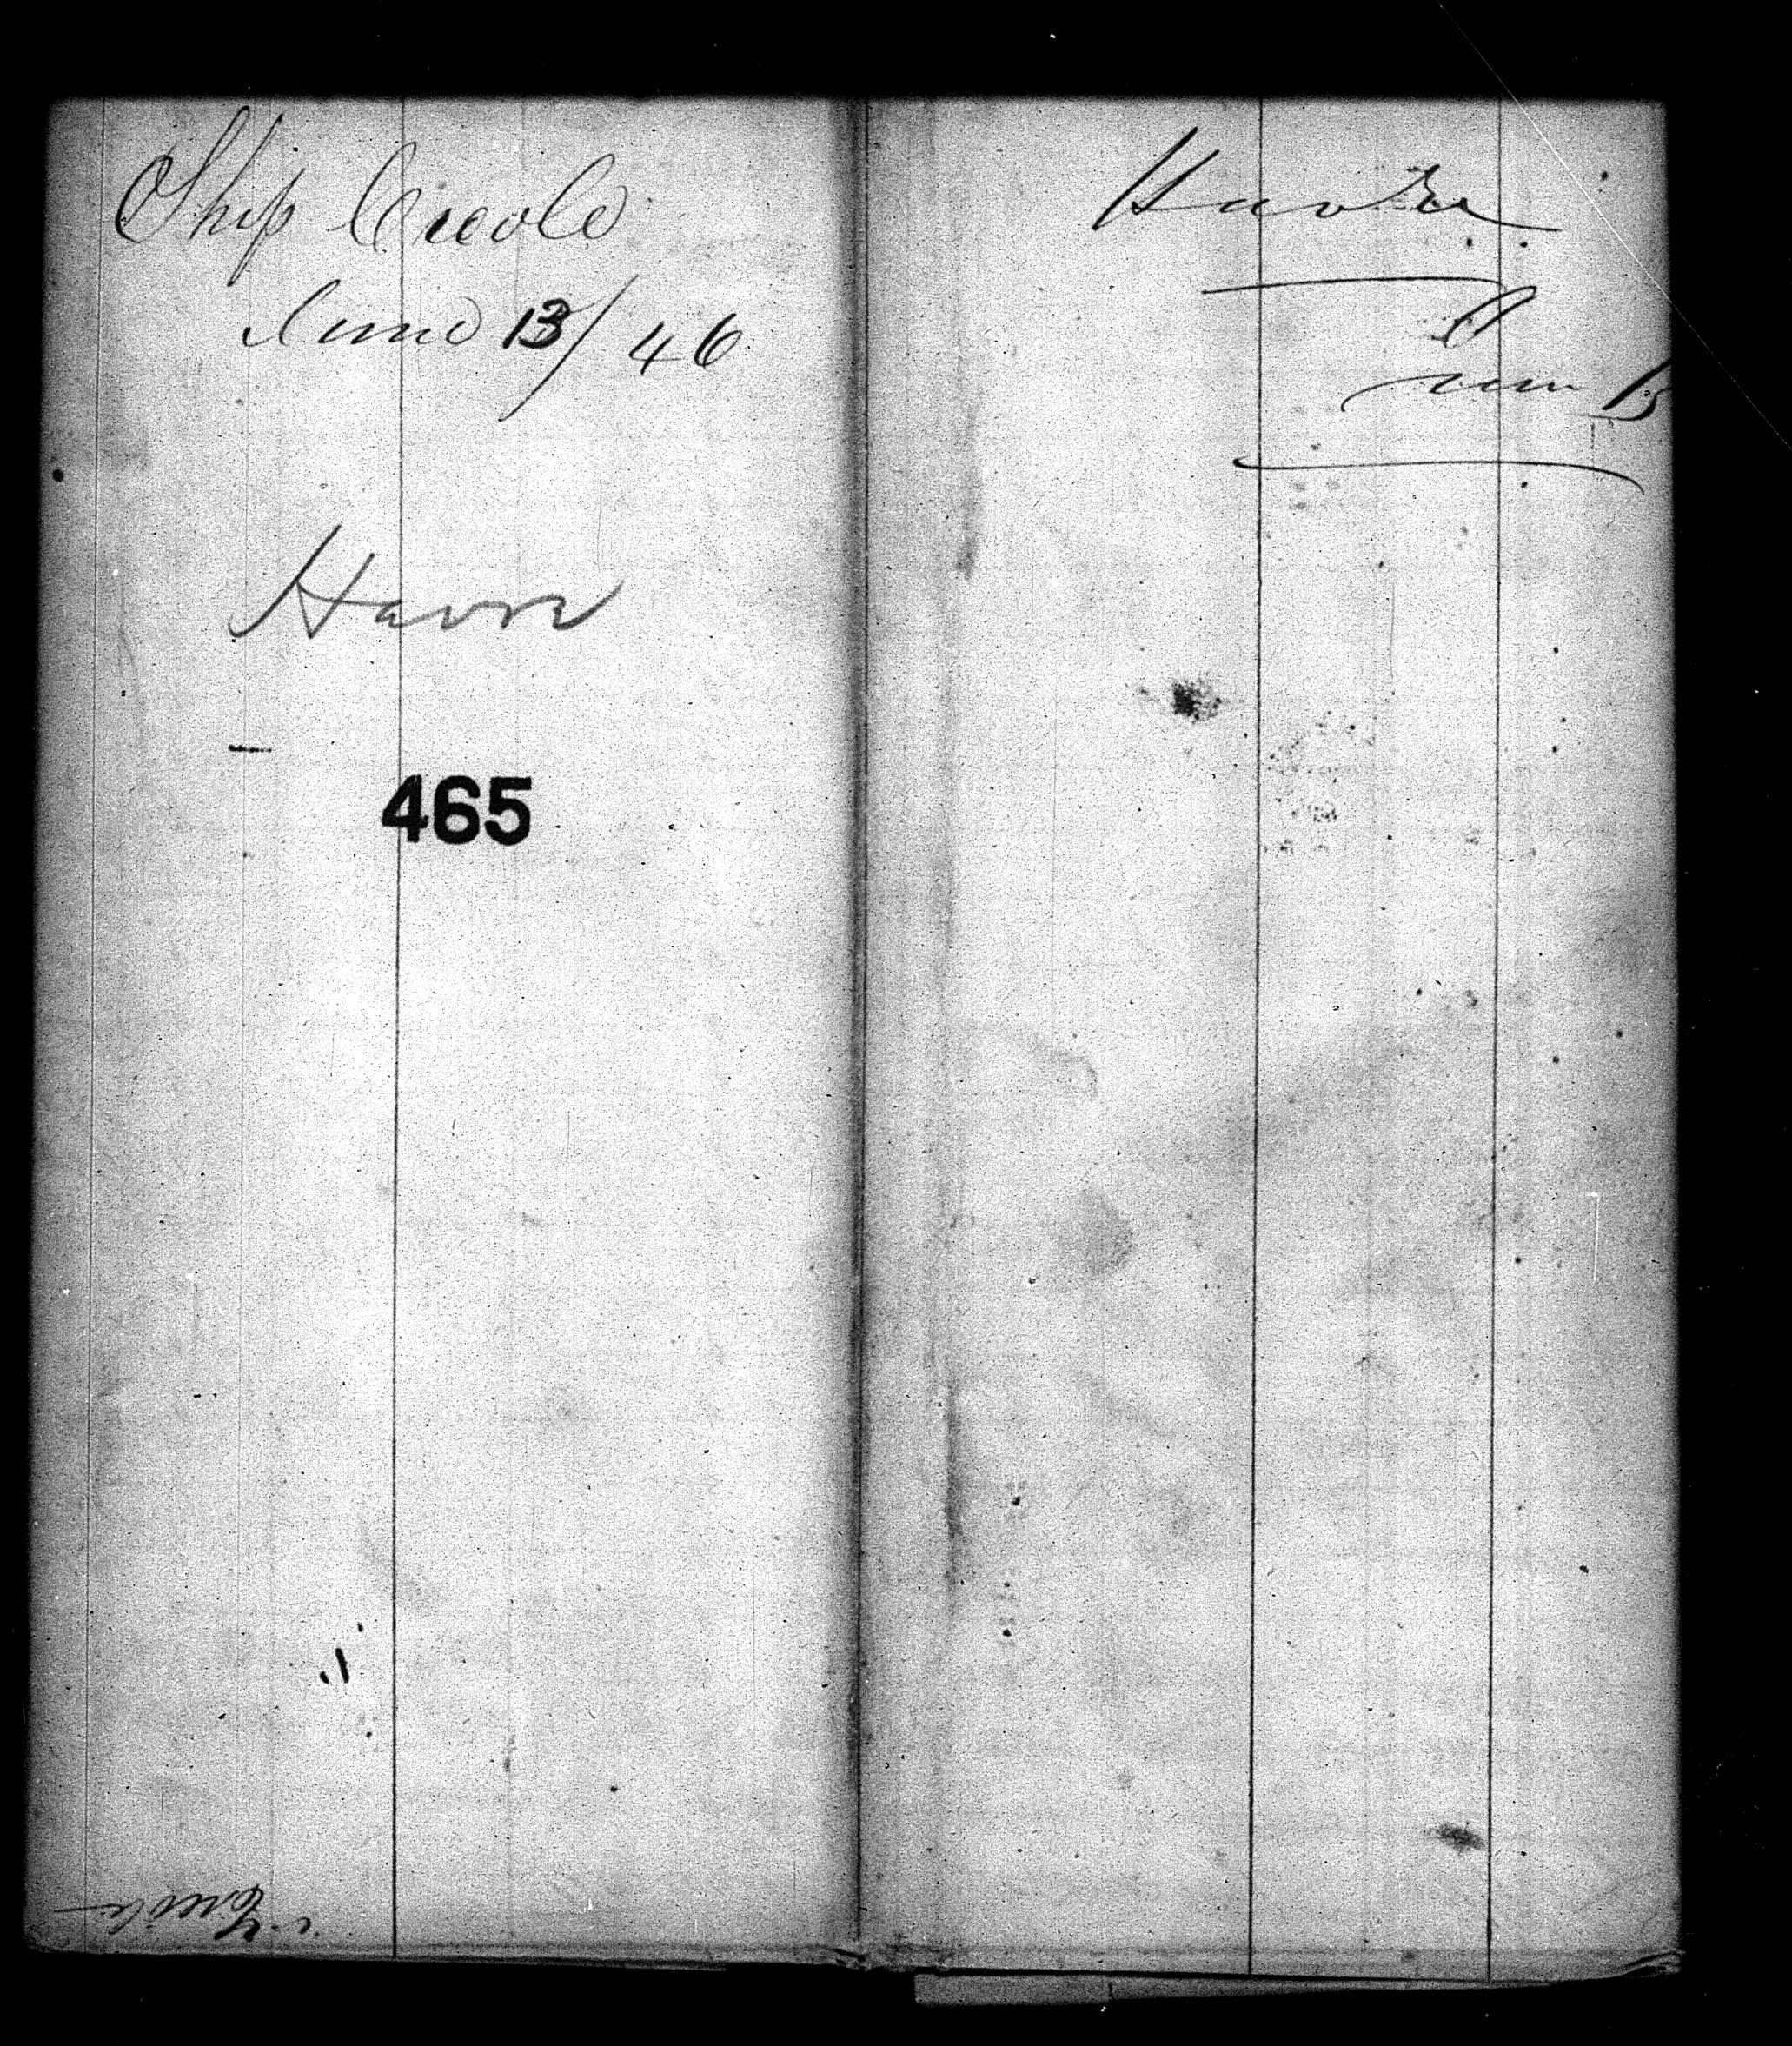 Ship Creole
June 13/46
Havre
465
Creole
Havre
June 13